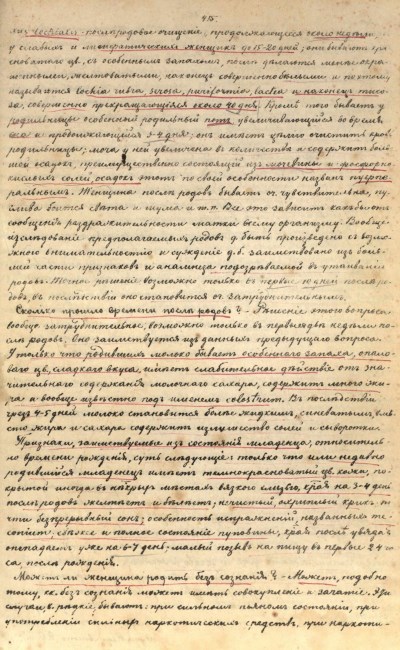 45.
Lochiala - послеродовое очищение, продолжающееся около недели,
у слабых и лимфатических женщин до 15-20 дней; они бывают кра
сноватого цв. съ особеннымъ запахомъ, после делаются
желтоватыми, наконецъ совершенно белыми и потому
называются lochia rubra, serosa, puriformia, lactea и наконецъ
совершенно прекращающіеся около 40 дня. Кроме того бываетъ у
родильницы особенный родильный потъ, увеличивающійся во время
сна и продолжающійся 3-4 дня; онъ имеетъ целью очистить кровь
родильницы; моча у ней увеличена въ количестве и содержитъ боль
шой осадокъ, преимущественно состоящій изъ мочевины и фосфорно
кислыхъ солей, осадокъ этотъ по своей особенности названъ пуэрпе
ральнымъ. Женщина после родовъ бываетъ оч. чувствительна, пу
глива боится света и шума и т.п. Все это зависитъ какъ бы отъ
сообщенія раздражительности матки всему организму. Вообще
изследованіе предполагаемыхъ родовъ д. быть произведено съ возмо
жною внимательностію и сужденіе д.б. заимствовано изъ боль
шей части признаковъ и анализа подозреваемой въ утаиваніи
родовъ. Точно решеніе возможно только въ первые 10 дней после ро
довъ, въ последствіи оно становится оч. затруднительнымъ.
Сколько прошло времени после родовъ? - Решеніе этого вопроса
вообще затруднительное, возможно только въ первые две недели по
сле родовъ; оно заимствуется изъ данныхъ предыдущаго вопроса.
У только что родившихъ молоко бываетъ особеннаго запаха, опало-
ваго цв., сладкаго вкуса, имеетъ слабительное действіе отъ зна
чительнаго содержанія молочнаго сахара, содержитъ много жи
ра и вообще известно подъ именемъ colostrum. Въ последствіи
чрезъ 4-5 дней молоко становится более жидкимъ, синеватымъ, вме
сто жира и сахара содержитъ излишество солей и сыворотки.
Признаки, заимствуемые изъ состоянія младенца, относитель
но времени рожденія, суть следующіе: только что или недавно
родившійся младенецъ имеетъ темнокрасноватый цв. кожи, по
крытой иногда въ некоторыхъ местахъ вязкою слизью, края на 3-4 день
после родовъ желтеетъ и белеетъ; нечистый, охриплый крикъ; по
чти безпрерывный сонъ; особенность испражненій, названныхъ ме
conium; свежее и полное состояніе пуповины, края после увядая
отпадаетъ уже на 6-7 день; малый позывъ на пищу въ первые 24 ча
са, после рожденія.
Можетъ ли женщина родить безъ сознанія? - Можетъ, подобно
тому, кк. безъ сознанія можетъ иметь совокупленіе и зачатіе. Эти
случаи, в. редкіе, бываютъ: при сильномъ пьяномъ состояніи, при
употребленіи сильныхъ наркотическихъ средствъ, при наркоти-